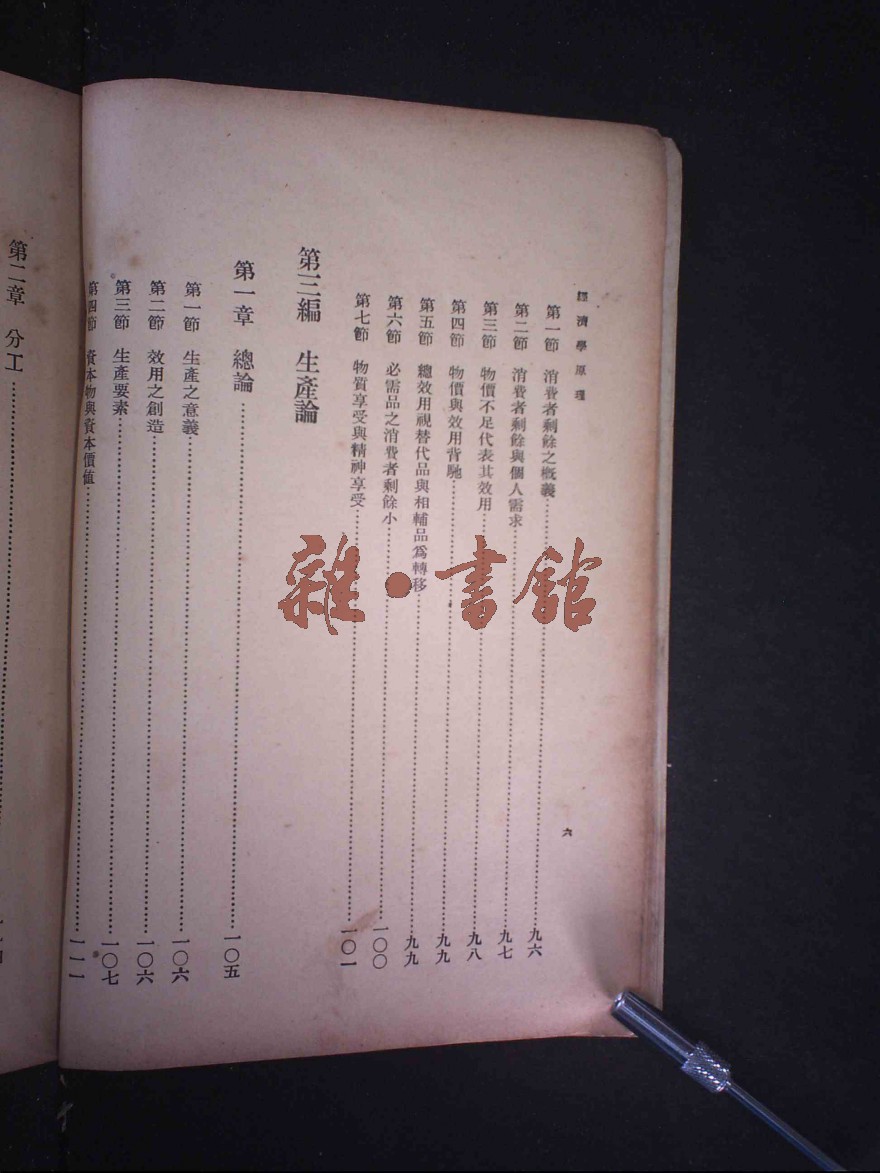 經濟學原理
六
第一節 消費者剩餘之概義……九六
第二節 消費者剩餘與個人需求……九七
第三節 物價不足代表其效用……九八
第四節 物價與效用背馳……九九
第五節 總效用視替代品與相輔品爲轉移……九九
第六節 必需品之消費者剩餘小……一〇〇
第七節 物質享受與精神享受……一〇一
第三編 生產論
第一章 總論……一〇五
第一節 生產之意義……一〇六
第二節 效用之創造……一〇六
第三節 生產要素……一〇七
第四節 資本物與資本價值……一一一
第二章 分工……
雜·書館